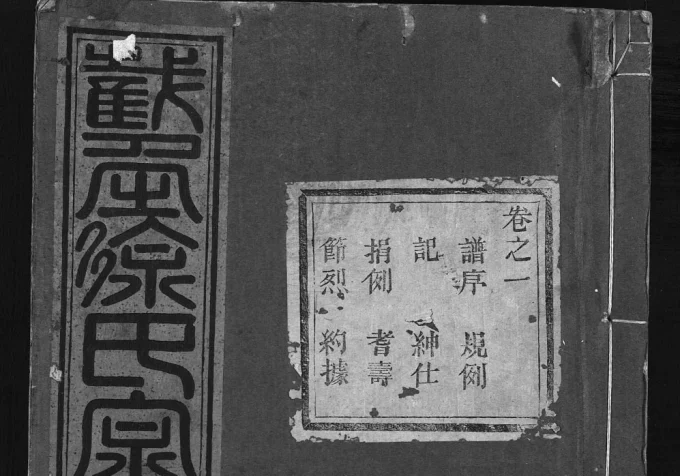 卷之一
譜序 規例
記 紳仕
捐例 耆壽
節烈 約據
徐氏宗